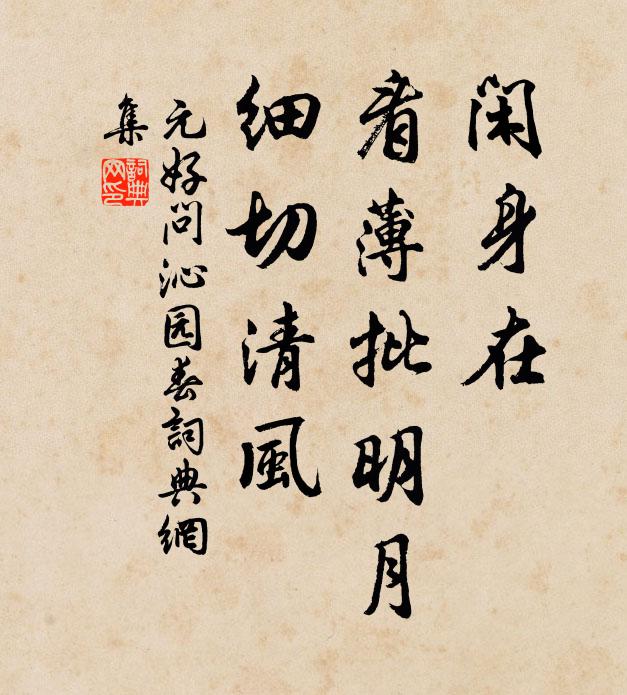 闲身在
看薄批明月
细切清風
元好问沁园春詞典網
集
詞典网印